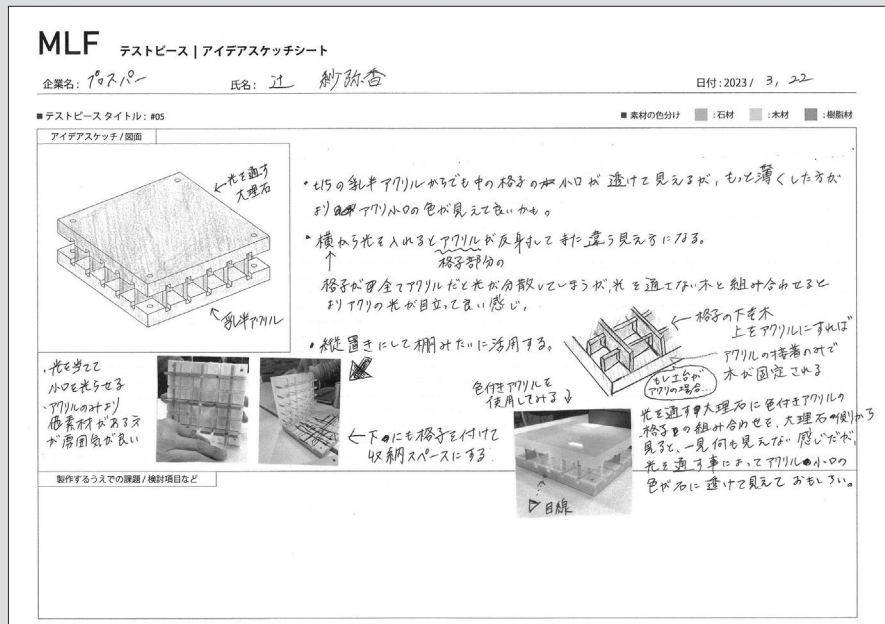 MLF テストピース | アイデアスケッチシート
企業名: プロスパー 氏名: 辻 紗弥香 日付:2023/ 3, 22
■ テストピース タイトル: #05 ■ 素材の色分け :石材 :木材 :樹脂材
アイデアスケッチ / 図面
←光を通す
大理石
乳半アクリル
・t15の乳半アクリルからでも中の格子の小口が透けて見えるが、もっと薄くした方が
よりアクリ小口の色が見えて良いかも。
・横から光を入れるとアクリルが反射してまた違う見え方になる。
↑ 格子部分の
格子が全てアクリルだと光が分散してしまうが、光を通さない木と組み合わせると
よりアクリの光が目立って良い感じ。
・縦置きにして棚みたいに活用する。
← 格子の下を木
上をアクリルにすれば
アクリルの接着のみで
木が固定される
もし土台が
アクリの場合…
・光を当てて
小口を光らせる
・アクリルのみより
他素材がある方
が雰囲気が良い
←下にも格子を付けて
収納スペースにする
色付きアクリルを
使用してみる
光を通す大理石に色付きアクリルの
格子の組み合わせを、大理石側から
見ると、一見何も見えない感じだが、
光を通す事によってアクリル小口の
色が石に透けて見えておもしろい。
目線
製作するうえでの課題 / 検討項目など